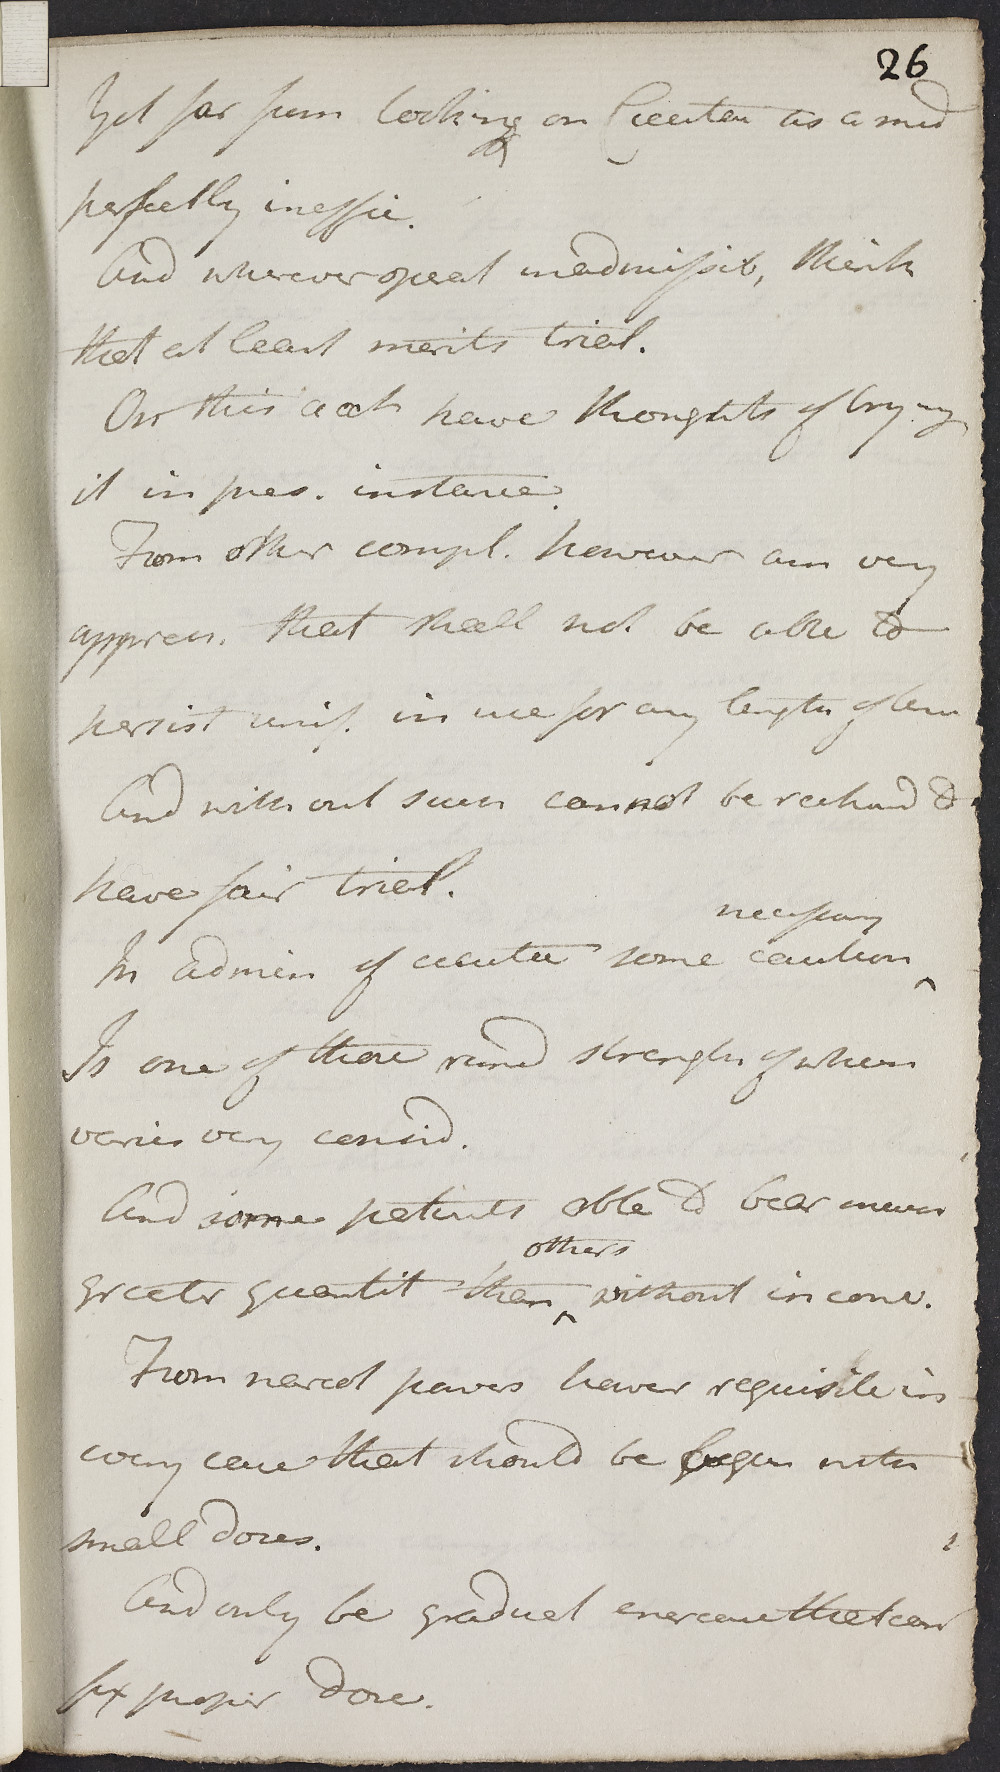 26
Yet far from looking on Cicuta as a med
perfectly ineffic.
And wherever opeat inadmissib, think
that at least merits trial.
On this acct have thoughts of trying
it in pres. instance.
From other compl. however am very
appren. that shall not be able to
persist unif. in use for any length of tim
And without such cannot be reckond to
have fair trial.
necessary
In admin of cicuta some caution ^
Is one of those remd strength of when
varies very consid.
And some patients able to bear much
others
greater quantit than ^ without inconv.
From narcot powers hower requisite in
every case that should be begun with
small doses.
And only be gradual encrease that can
fix proper dose.